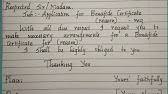 Respected Sir/Madam
Sub:- Application for Bonafide Certificate
(reason) - req
With all due respect I request you to
make necessary arrangements for a Bonafide
Certificate for (reason)
I shall be highly obliged to you
Thanking You
Place: Yours faithfully